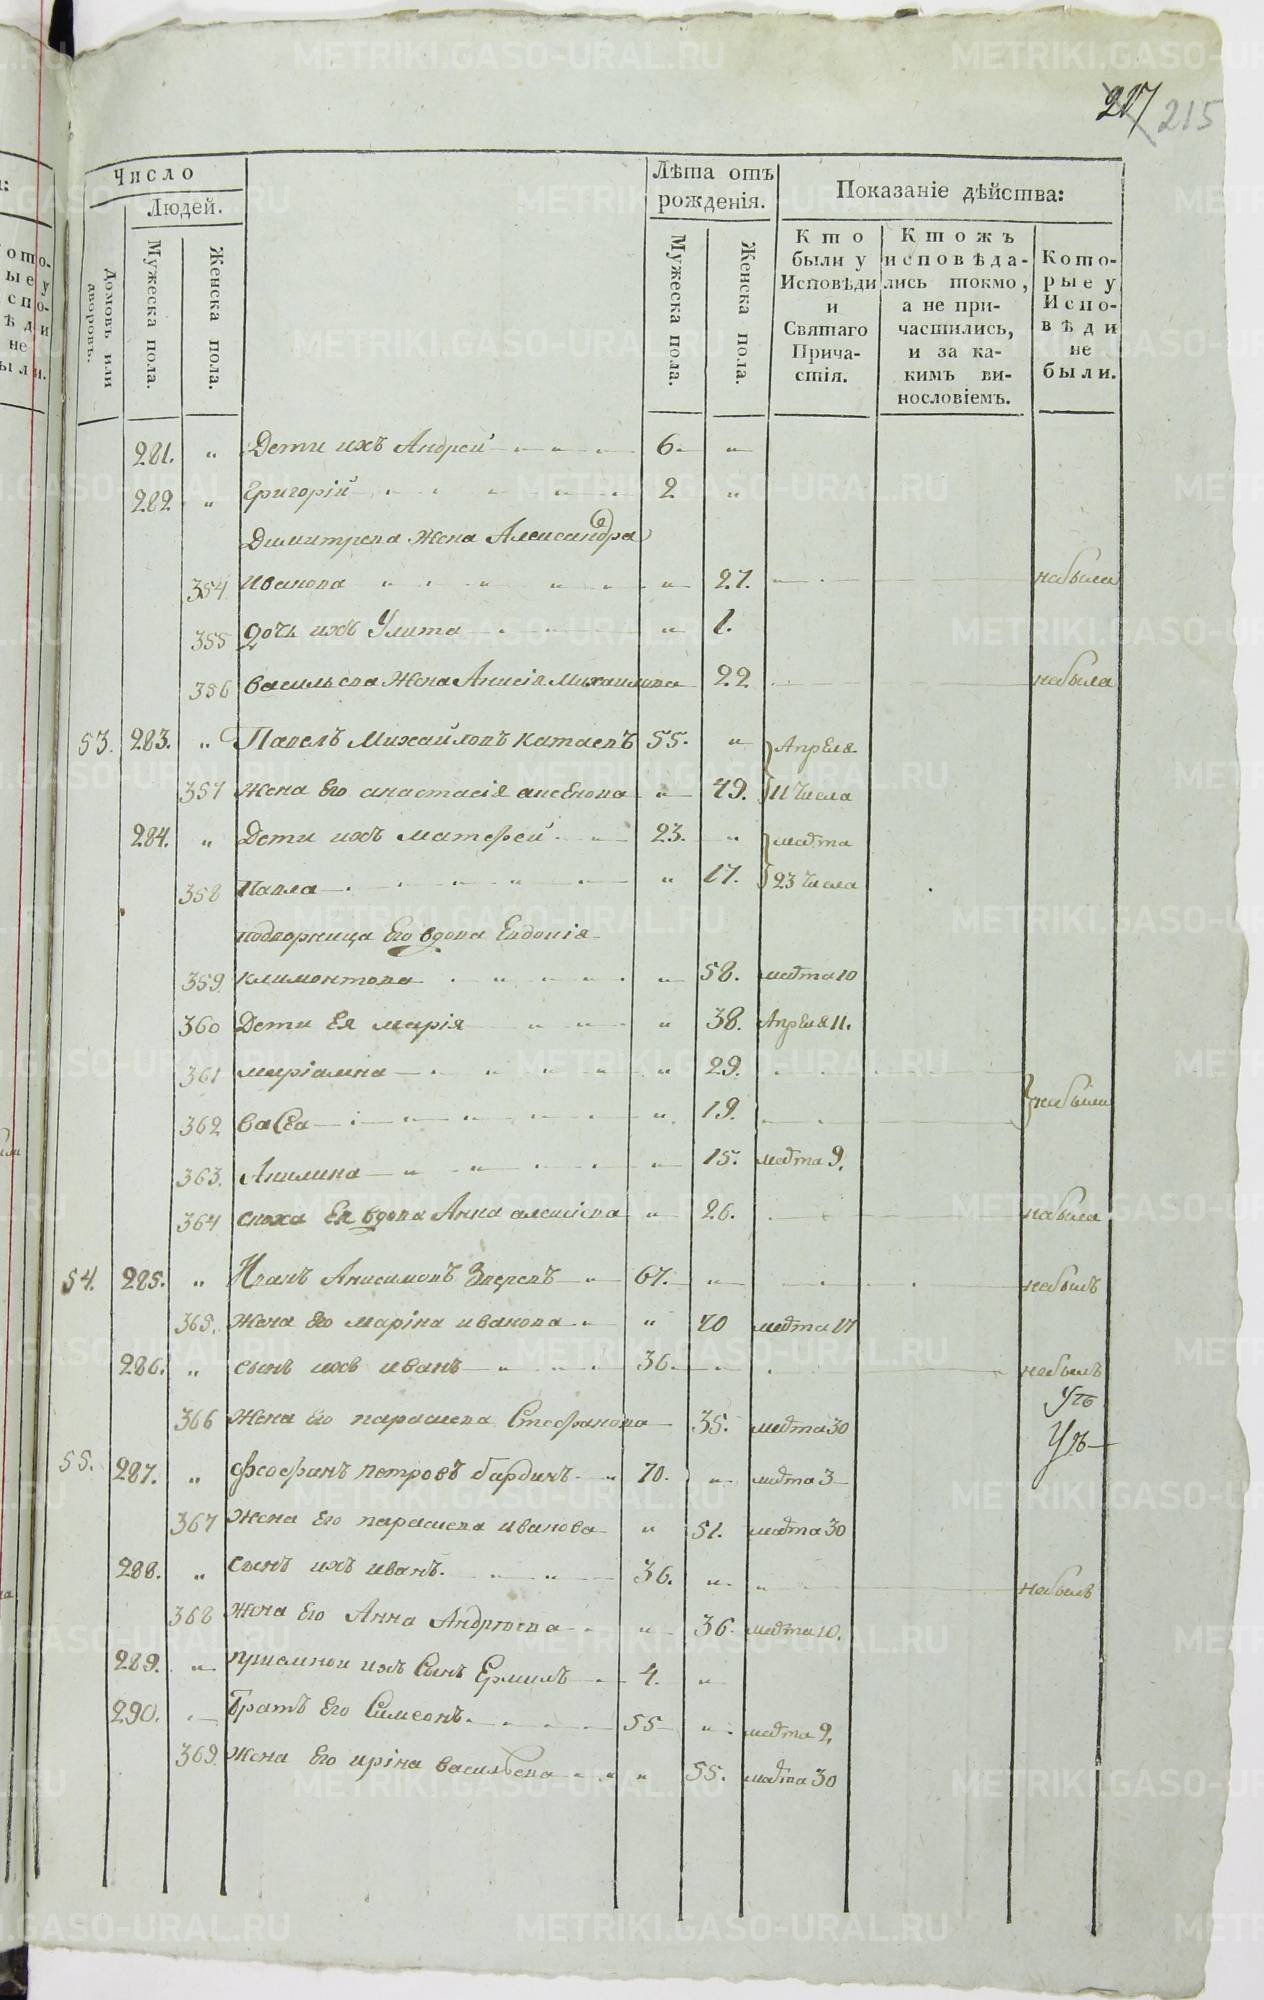 217 215
Число
Людей.
Домовъ или дворовъ.
Мужеска пола.
Женска пола.
Лѣта отъ рожденія.
Мужеска пола.
Женска пола.
Показаніе дѣйства:
Кто были у Исповѣди и Святаго Причастія.
Ктожъ исповѣдались токмо, а не причастились, и за какимъ винословіемъ.
Которые у Исповѣди не были.
281. " Дети ихъ Андрей 6. "
282 " Григорій 2 "
Димитрева жена Александра
354 Иванова " 27. небыла
355 дочь ихъ Улита " 1.
356 Васильева жена Анисія Михаилова 22 небыла
53. 283. " Павелъ Михайловъ Катаевъ 55. " Апреля
357 жена Его анастасія аксенова " 49. 11 числа
284. " Дети ихъ матфей 23. " марта
358 Павла " 17. 23 числа
подворница Его вдова Евдокія
359 климонтова " 58. марта 10
360 Дети Ея марія " 38. Апреля 11.
361 меріамна " 29.
362 васса " 19. небыли
363. Акилина " 15. марта 9.
364 сноха Ея вдова Анна алексіева " 26. небыла
54. 285. " Иванъ Анисимовъ Зверевъ 67. " небылъ
365. жена Его маріна иванова " 70 марта 17
286. " сынъ ихъ иванъ 36. " небылъ
366 жена Его параскева Стефанова 35. марта 30
55. 287. " Феофанъ петровъ бардинъ 70. " марта 3
367 жена Его параскева иванова " 51. марта 30
288. " сынъ ихъ иванъ. 36. " небылъ
368 жена Его Анна Андреева " 36. марта 10.
289. " приемной ихъ Сынъ Ермилъ 4. "
290. братъ Его Симеонъ. 55 " марта 9.
369. жена Его иріна васильева " 55. марта 30
METRIKI.GASO-URAL.RU